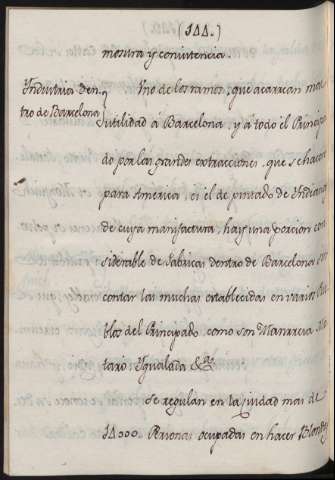 (144.)
mostura y convivencia.
Yndustria den-
tro de Barcelona
Uno de los ramos, que acarrean mas
utilidad á Barcelona, y á todo el Principa
do por las grandes extracciones, que se hacen
para America es el de pintado de Yndianas
de cuya manifactura, hay una porcion con
siderable de Fabricas dentro de Barcelona sin
contar las muchas establecidas en varios Pue
blos del Principado, como son Manresa, Ma
taró, Ygualada &ª
Se regulan en la ciudad mas de
14000. Personas ocupadas en hacer Blondas